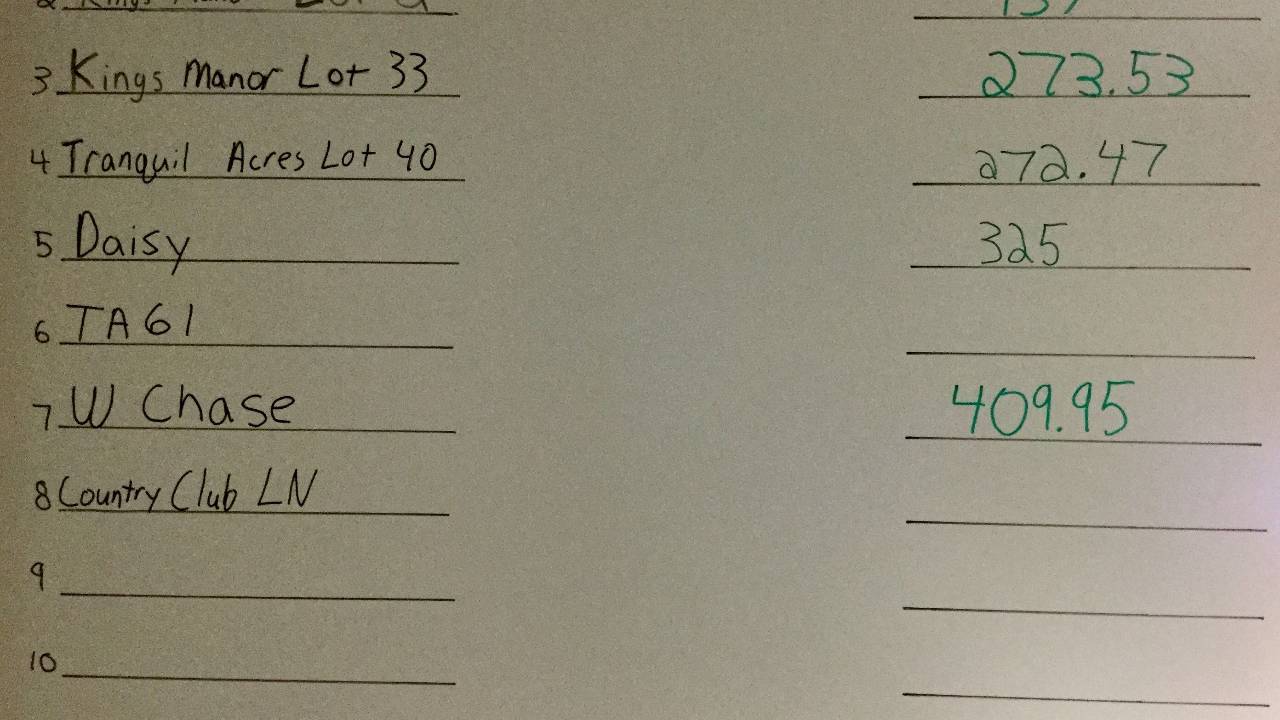 2 Kings Manor Lot
3 Kings Manor Lot 33 273.53
4 Tranquil Acres Lot 40 272.47
5 Daisy 325
6 TA 61
7 W Chase 409.95
8 Country Club LN
9
10